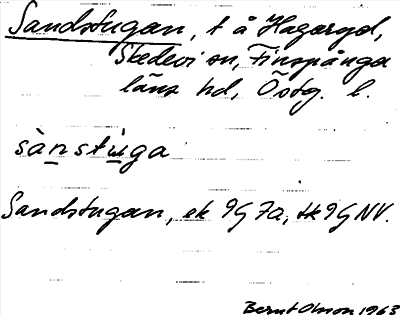 Sandstugan, t å Hagaryd,
Skedevi sn, Finspånga
läns hd, Östg. l.
sànstùga
Sandstugan, ek 9G 7a, tk 9G NV.
Bernt Olsson 1963